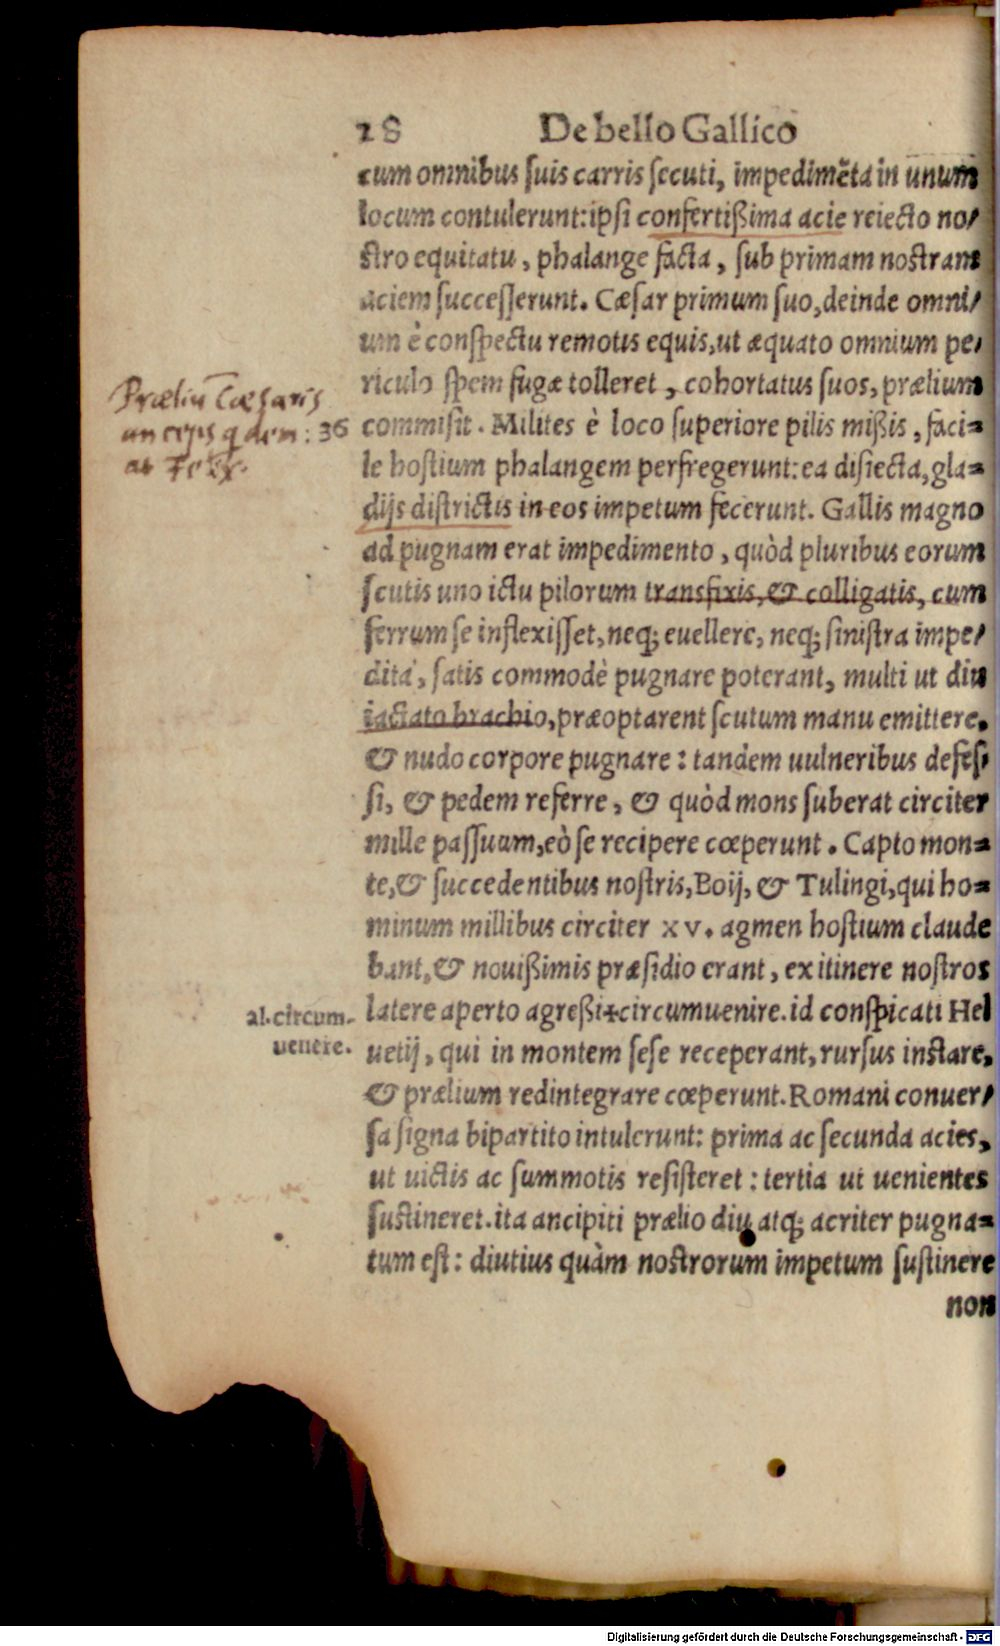 28 De bello Gallico
cum omnibus suis carris secuti, impedimẽta in unum
locum contulerunt: ipsi confertißima acie reiecto no/
stro equitatu, phalange facta, sub primam nostram
aciem successerunt. Cæsar primum suo, deinde omni/
um è conspectu remotis equis, ut æquato omnium pe/
riculo spem fugæ tolleret, cohortatus suos, prælium
Præliũ Cæsaris
anceps quidem: 36
at Felix.
commisit. Milites è loco superiore pilis mißis, faci=
le hostium phalangem perfregerunt: ea disiecta, gla=
dijs districtis in eos impetum fecerunt. Gallis magno
ad pugnam erat impedimento, quòd pluribus eorum
scutis uno ictu pilorum transfixis, & colligatis, cum
ferrum se inflexisset, neq; euellere, neq; sinistra impe/
dita, satis commodè pugnare poterant, multi ut diu
iactato brachio, præoptarent scutum manu emittere.
& nudo corpore pugnare: tandem uulneribus defes/
si, & pedem referre, & quòd mons suberat circiter
mille passuum, eò se recipere cœperunt. Capto mon=
te, & succedentibus nostris, Boij, & Tulingi, qui ho=
minum millibus circiter xv. agmen hostium claude
bant, & nouißimis præsidio erant, ex itinere nostros
latere aperto agreßi+circumuenire. id conspicati Hel
al. circum-
uenere.
uetij, qui in montem sese receperant, rursus instare,
& prælium redintegrare cœperunt. Romani conuer/
sa signa bipartito intulerunt: prima ac secunda acies,
ut uictis ac summotis resisteret: tertia ut uenientes
sustineret. ita ancipiti prælio diu atq; acriter pugna=
tum est: diutius quàm nostrorum impetum sustinere
non
Digitalisierung gefördert durch die Deutsche Forschungsgemeinschaft - DFG